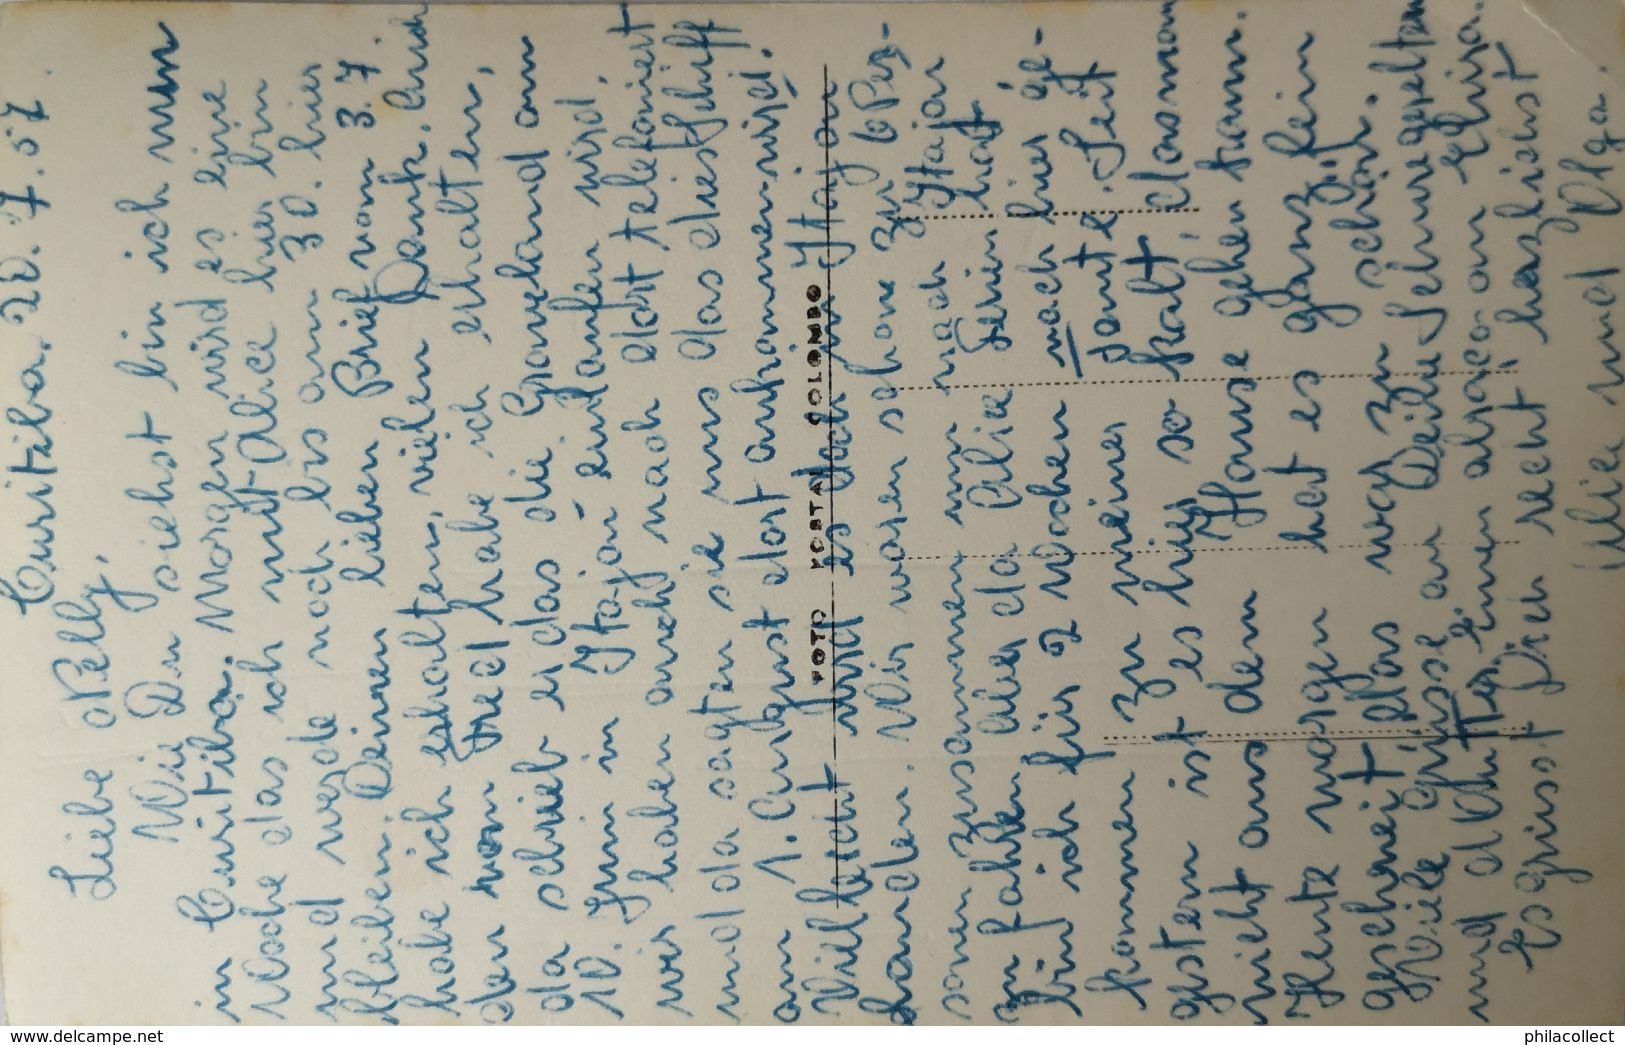 Curitiba, 20.7.57
Liebe Nelly,
Wie Du siehst bin ich nun
in Curitiba. Morgen wird es eine
Woche das ich mit Alice hier bin
und werde noch bis am 30. hier
bleiben. Deinen lieben Brief vom 3.7.
habe ich erhalten, vielen Dank. Auch
den von Fredl habe ich erhalten,
da schrieb er das die Graveland am
10. Juni in Itajaí einlaufen wird,
wir haben auch nach dort telefoniert
und da sagten sie uns das dies Schiff
am 1. August dort ankommen wird.
Vielleicht wird es doch in Itajaí
Wir waren schon zu 6 Per-
sonen zusammen um nach Itajaí
zu fahren. Aber da Alice Ferien hat
bin ich für 2 Wochen nach hier ge-
kommen zu meiner Tante. Seit
gestern ist es hier so kalt, das man
nicht aus dem Hause gehen kann.
Heute morgen hat es ganz fein
geschneit, das war zu schön.
Viele Grüsse an Deine Schwiegereltern
und
Es grüsst Dich recht herzlichst
Olga.
FOTO POSTAL COLOMBO
delcampe.net
philacollect